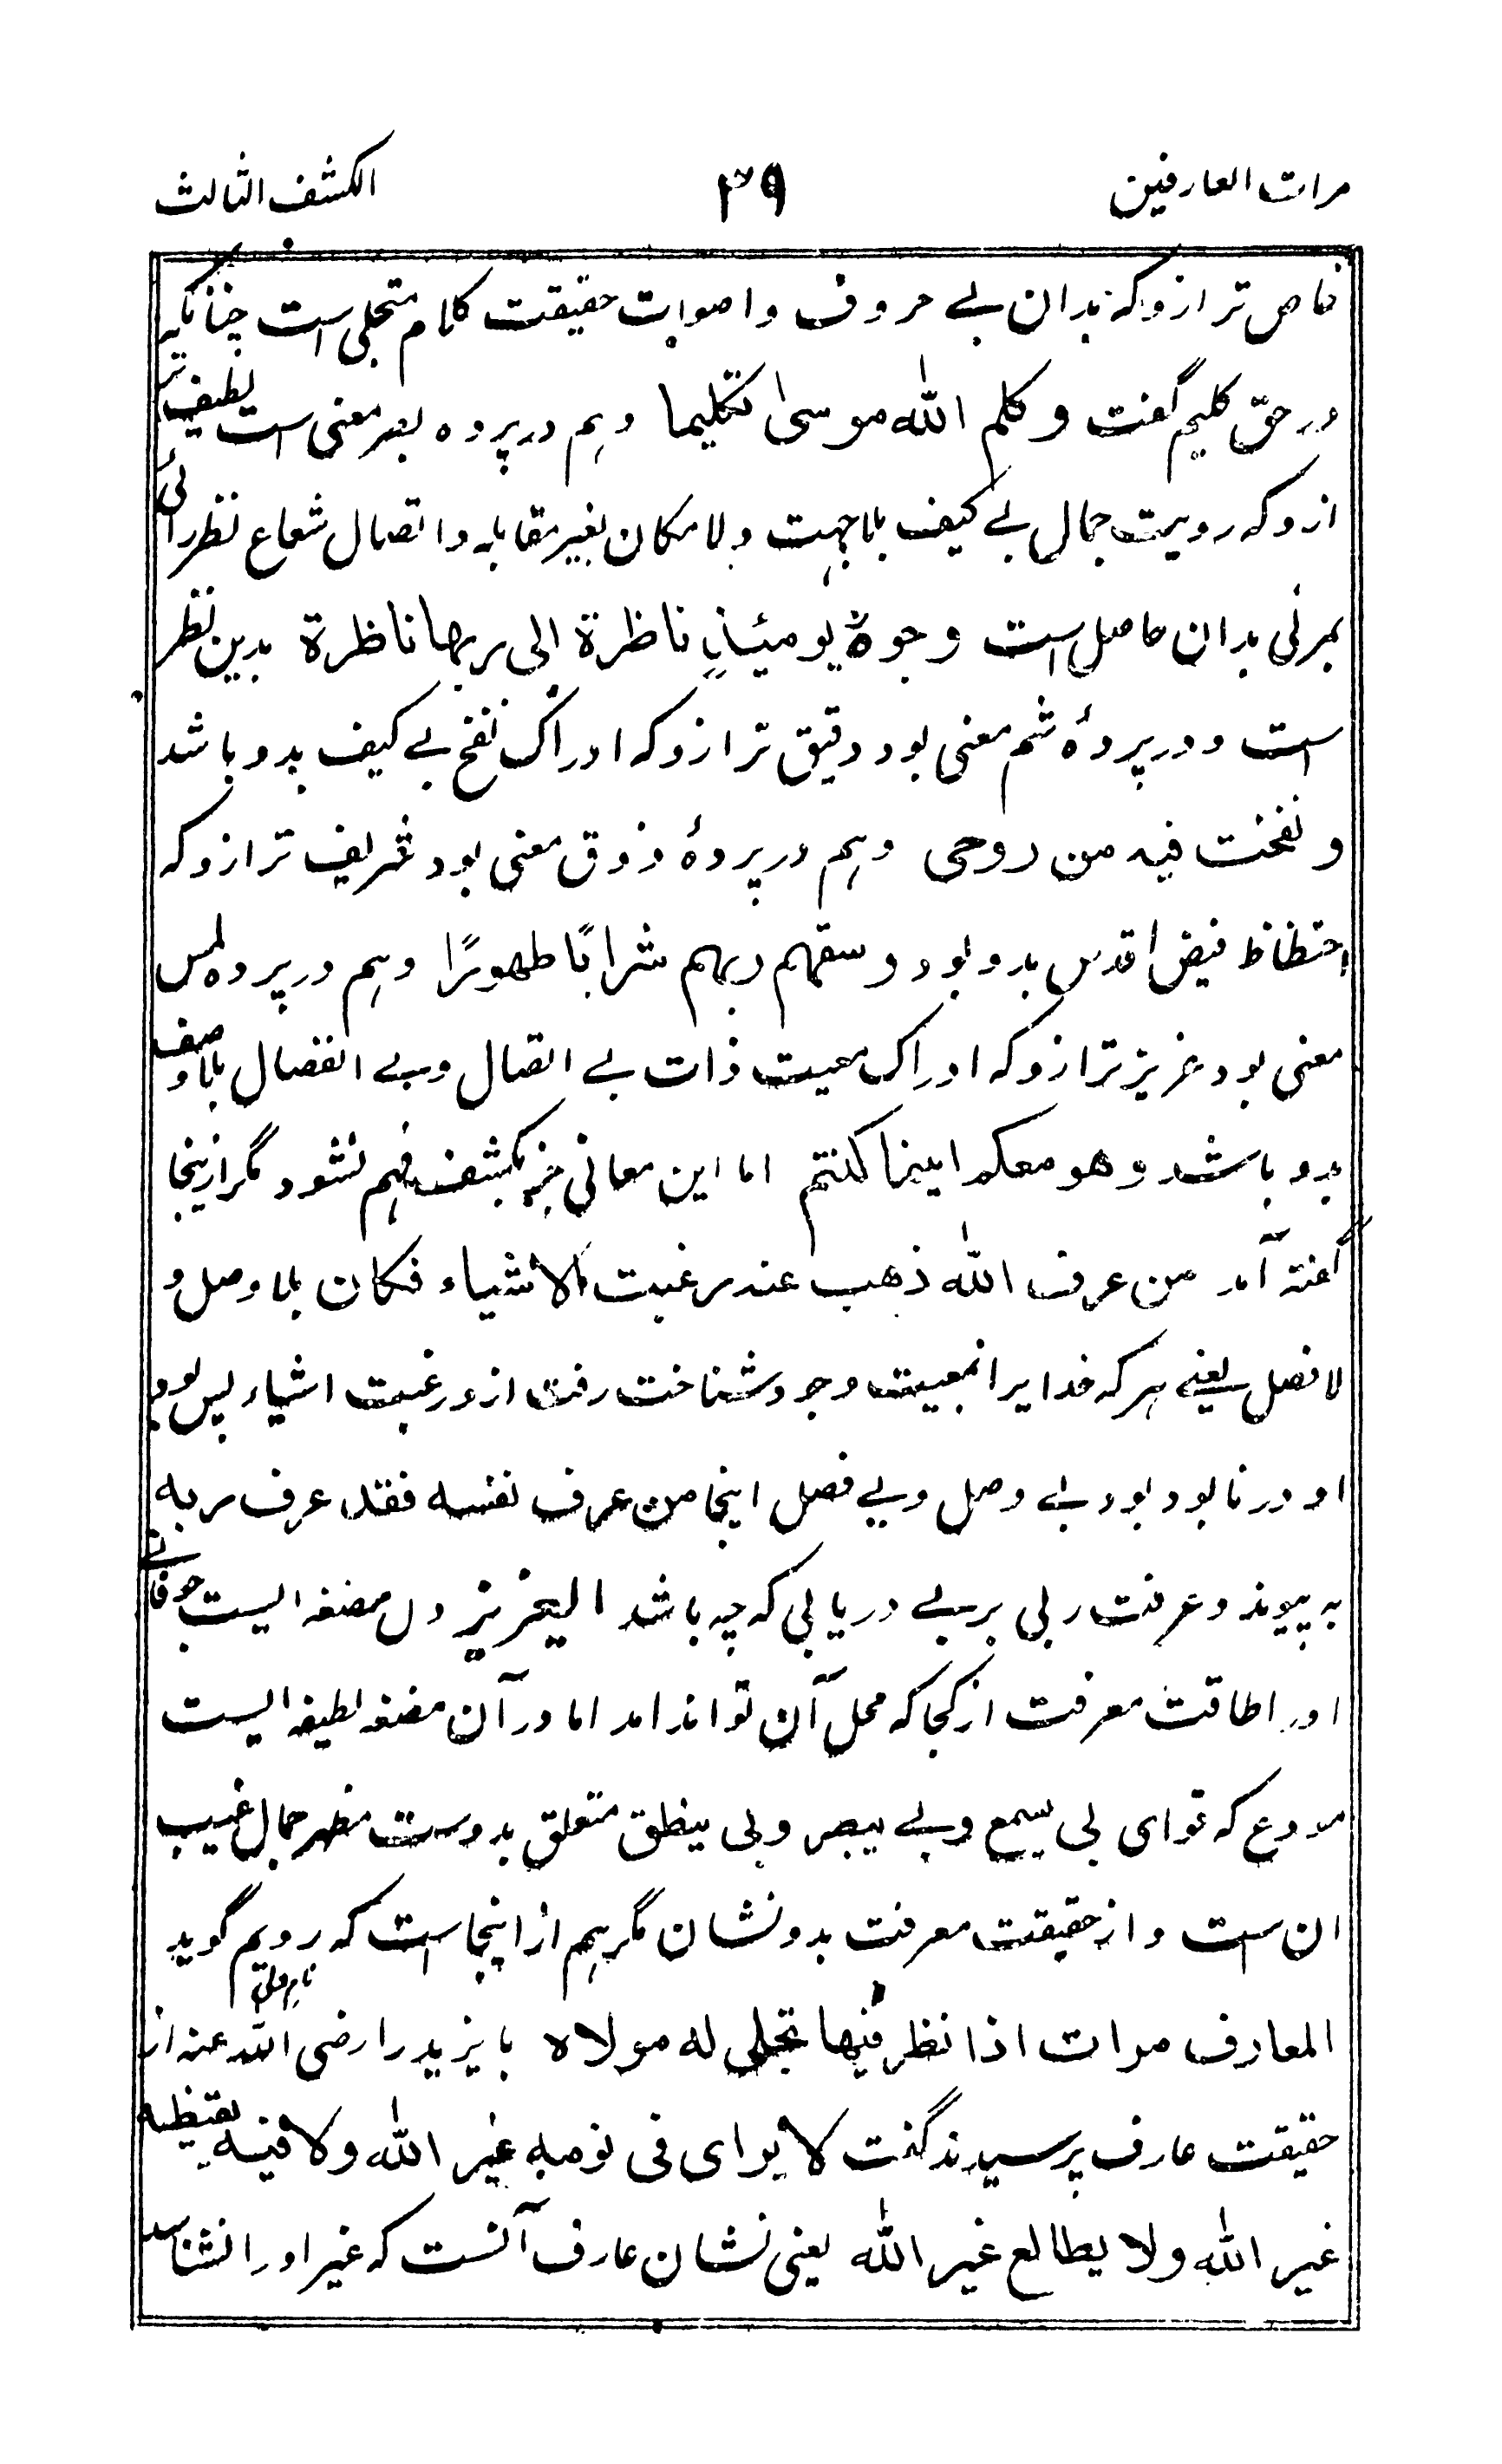 مرات العارفین ۳۹ الکشف الثالث
خاص تر ازو که بدان بے حروف و اصوات حقیقت کلام متجلی است چنانکه
در حق کلیم گفت وکلم الله موسیٰ تکلیما وہم در پرده بصر معنی است لطیف تر
ازو که رویت جمال بے کیف بلا جہت و لا مکان بغیر مقابله و اتصال شعاع نظر رائی
بمرئی بدان حاصل است وجوهٌ یومئذٍ ناظرة الی ربها ناظرة بدین نظر
است و در پردۀ شم معنی بود دقیق تر ازو که ادراک نفخ بے کیف بدو باشد
ونفخت فیه من روحی وہم در پردۀ ذوق معنی بود شریف تر ازو که
احتظاظ فیض اقدس بدو بود وسقهم ربهم شرابًا طهورًا وہم در پرده لمس
معنی بود عزیز تر ازو که ادراک معیت ذات بے اتصال وبے انفصال بلا وصف
بدو باشد وهو معکم اینما کنتم اما این معانی جز بکشف فہم نشود مگر ازینجا
گفته آمد من عرف الله ذهب عنه رغبت الاشیاء فکان بلا وصل و
لا فصل یعنے ہر که خدایرا بمعیت وجود شناخت رفت از و رغبت اشیاء پس بود
او در نابود بود بے وصل وبے فصل اینجا من عرف نفسه فقد عرف ربه
به پیوند و عرفت ربی بربے دریابی که چه باشد ایعزیز دل مضغه ایست جوفانے
اورا طاقت معرفت از کجا که محل آن تواند امد اما در آن مضغه لطیفه ایست
مودع که قوای بی یسمع وبے یبصر وبی ینطق متعلق بدوست مظہر جمال غیب
ان ست و از حقیقت معرفت بدو نشان مگر ہم از اینجا است که رویم گوید
نام ولی
المعارف مرات اذا نظر فیها تجلی له مولاه بایزید را رضی الله عنه از
حقیقت عارف پرسیدند گفت لا یرای فی نومه غیر الله ولا فی یقیظه
غیر الله ولا یطالع غیر الله یعنی نشان عارف آنست که غیر اورا نشناسد